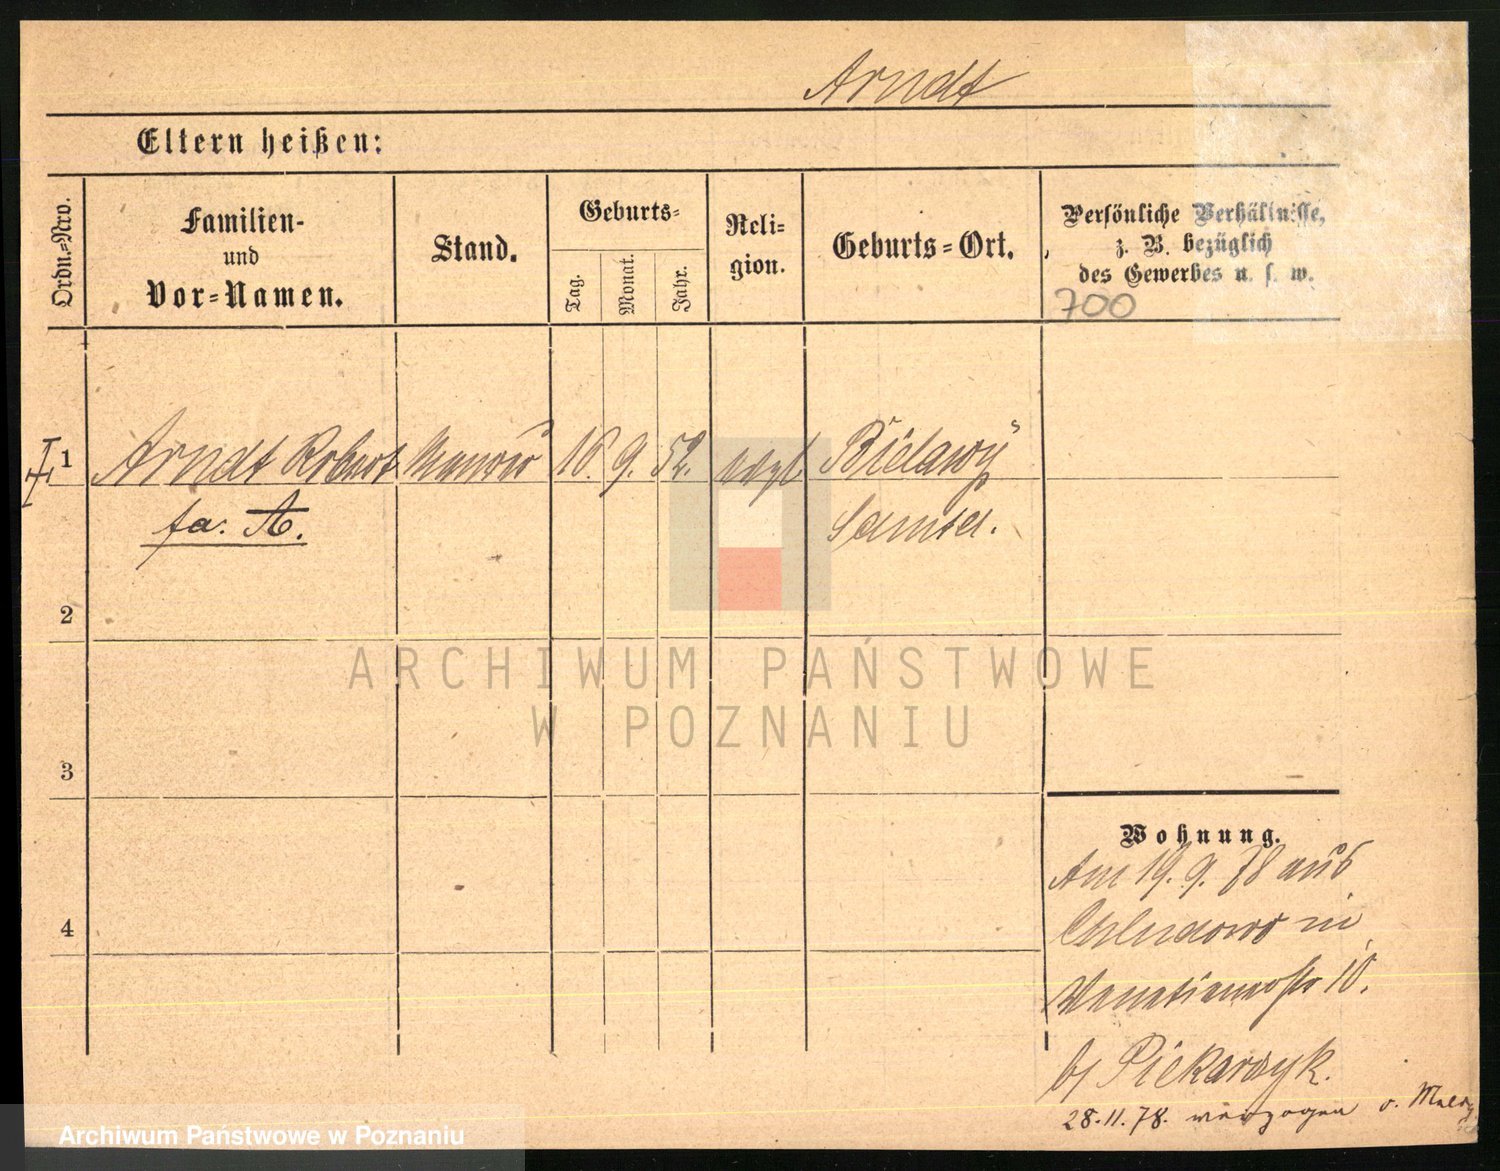 Arndt
Eltern heißen:
Ordn.-Nro.
Familien-
und
Vor-Namen.
Stand.
Geburts-
Tag.
Monat.
Jahr.
Reli-
gion.
Geburts-Ort.
Persönliche Verhältnisse,
z. B. bezüglich
des Gewerbes u. s. w.
700
1 Arndt Robert Maurer 16. 9. 52. evgl Bielawy
fa. A. Samter.
2
ARCHIWUM PAŃSTWOWE
W POZNANIU
3
Wohnung.
Am 19. 9. 78 aus
4
in
Venetianerstr 10.
b/ Piekarczyk.
28.11.78. verzogen
Archiwum Państwowe w Poznaniu